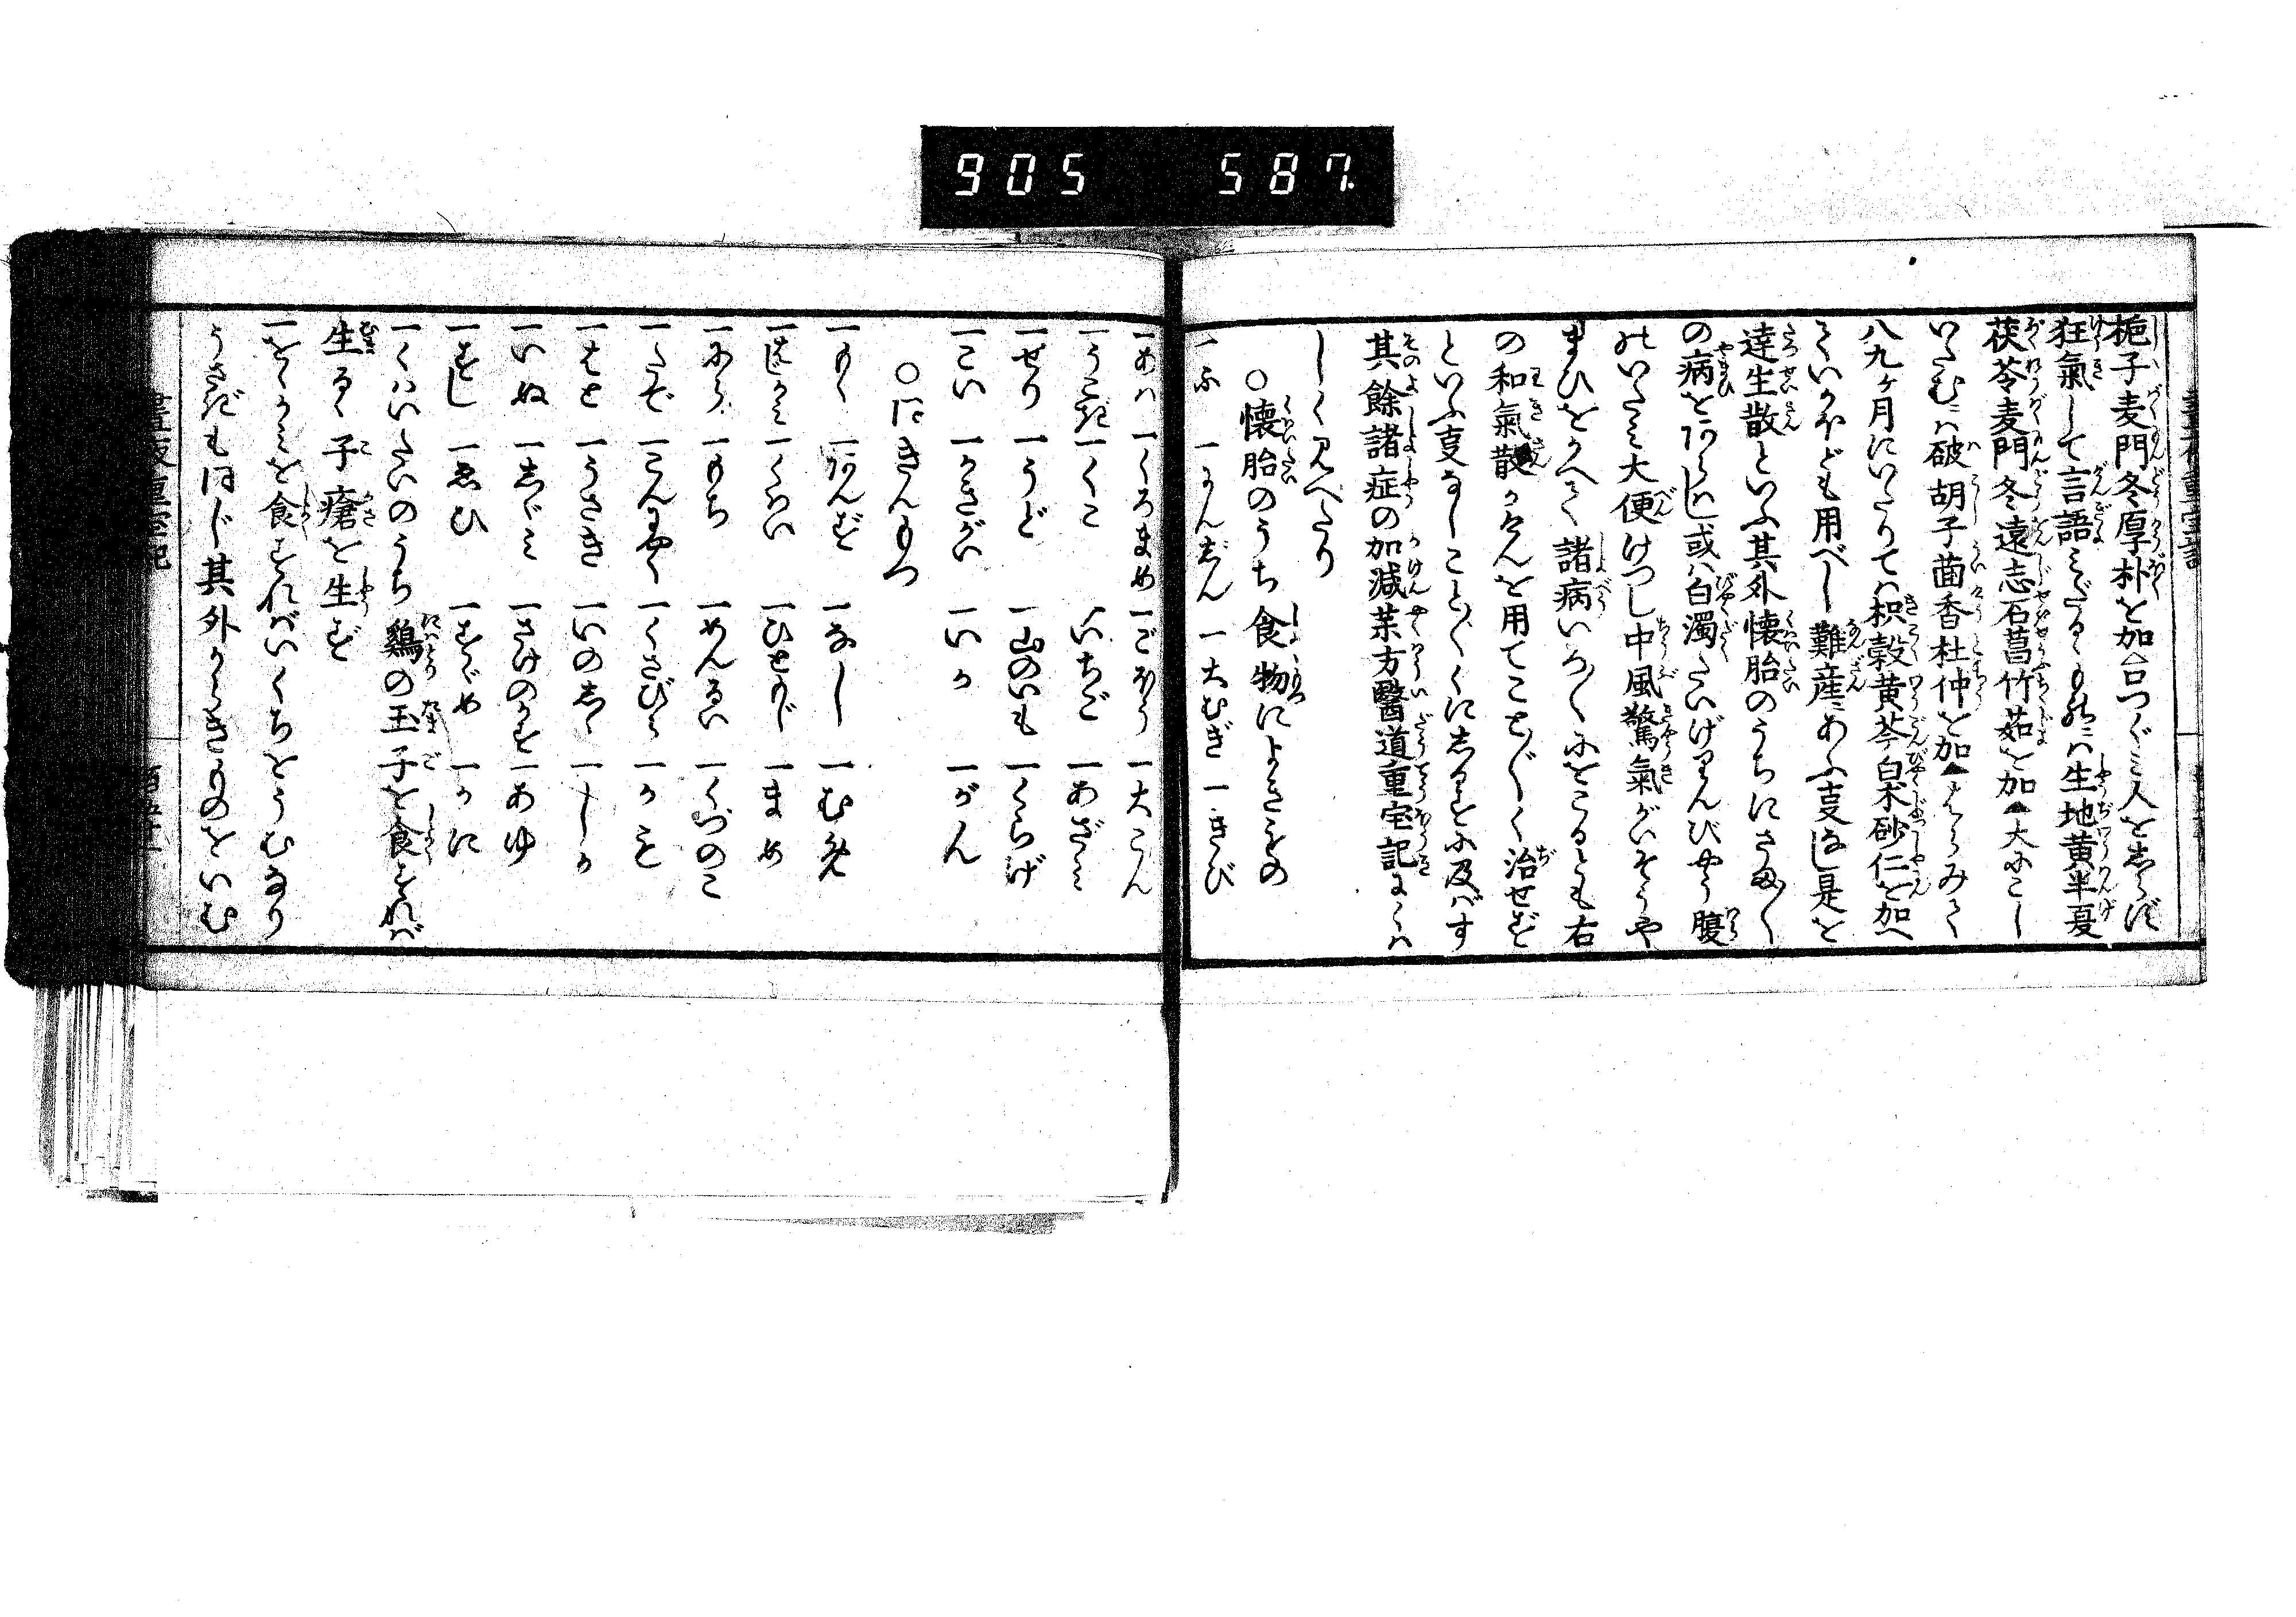 905 587
梔子麦門冬厚朴を加△口つぐミ人をしらず
狂氣して言語ミだるゝものハ生地黄半夏
茯苓麦門冬遠志石菖竹茹を加▲大にこし
いたむハ破胡子茴香杜仲を加▲はらみて
八九ケ月にいたりてハ枳穀黄芩白朮砂仁を加へ
てよし用べし難産にあふ事なし是を
達生散といふ其外懐胎のうちにさま〴〵
の病をわづらひ或ハ白濁たいげりんびやう腹
のいたミ大便けつし中風驚氣がいそうや
まひをかへて諸病いろ〳〵にをこるとも右
の和氣散かげんを用てこと〴〵く治せず
といふ事なしこと〴〵くにしるすに及バず
其餘諸症の加減薬方醫道重宝記にくハ
しく見へたり
○懐胎のうち食物によきもの
一ふ 一にんじん 一大むぎ 一きび
一あハ 一くろまめ 一ごぼう 一大こん
一うこぎ 一くこ 一いちご 一あざミ
一せり 一うど 一山のいも 一くらげ
一こい 一かきがい 一いか 一がん
○同きんもつ
一もゝ 一あんず 一なし 一むめ
一はじかミ 一くわい 一ひともじ 一まめ
一にら 一もち 一めんるい 一くずのこ
一たで 一こんにやく 一くさびら 一かも
一はと 一うさぎ 一いのしゝ 一しか
一いぬ 一しゞミ 一さけのかす 一あゆ
一すし 一ゑひ 一すゞめ 一かに
一くハいたいのうち鷄の玉子を食すれバ
生るゝ子瘡を生ず
一をしかミを食すれバいくちをうむなり
うさぎもおなじ其外からきものをいむ